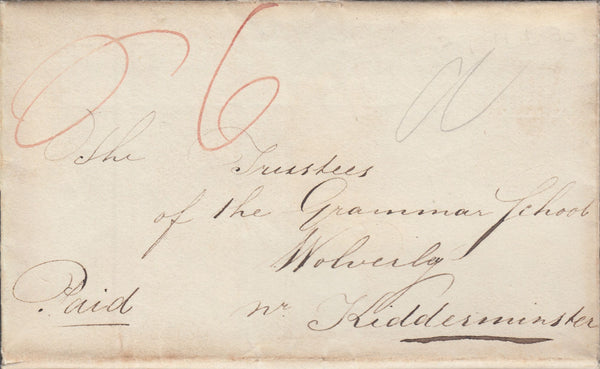 P 6
The Trustees
of the Grammar School
Wolverly
Paid nr Kidderminster